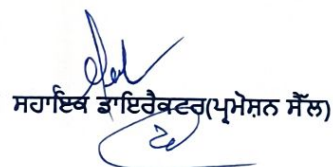 ਸਹਾਇਕ ਡਾਇਰੈਕਟਰ(ਪ੍ਰਮੋਸ਼ਨ ਸੈੱਲ)